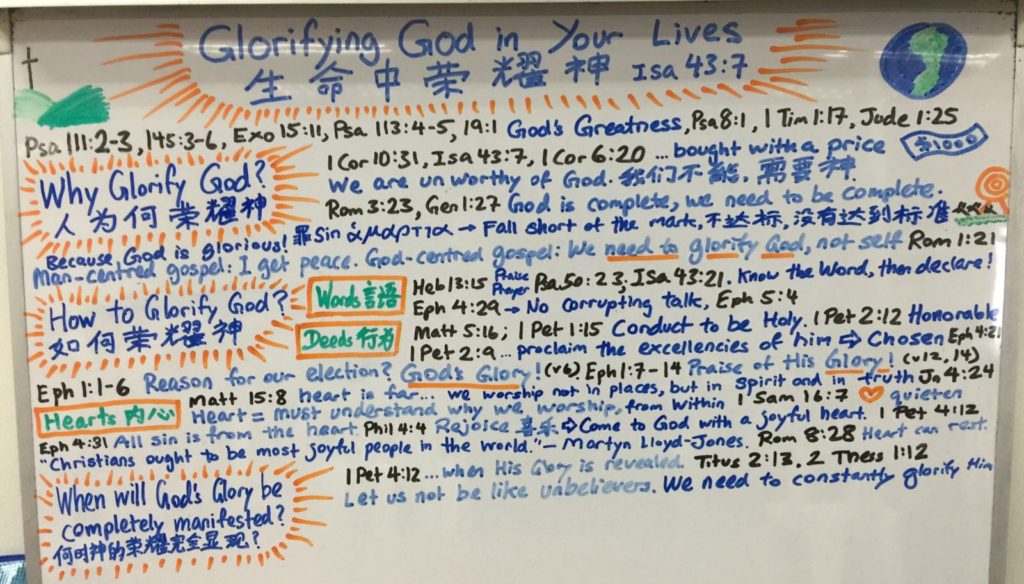 Glorifying God in Your Lives
生命中荣耀神 Isa 43:7
Psa 111:2-3, 145:3-6, Exo 15:11, Psa 113:4-5, 19:1 God's Greatness, Psa 8:1, 1 Tim 1:17, Jude 1:25
Why Glorify God?
人为何荣耀神
1 Cor 10:31, Isa 43:7, 1 Cor 6:20 ...bought with a price
$1000
We are unworthy of God. 我们不能, 需要神
Rom 3:23, Gen 1:27 God is complete, we need to be complete.
罪 Sin ἁμαρτια → Fall short of the mark, 不达标, 没有达到标准
Because, God is glorious!
Man-centred gospel: I get peace. God-centred gospel: We need to glorify God, not self Rom 1:21
How to Glorify God?
如何荣耀神
Words 言語
Heb 13:15 Praise Prayer Psa 50:23, Isa 43:21. Know the Word, then declare!
Eph 4:29 → No corrupting talk, Eph 5:4
Deeds 行为
Matt 5:16; 1 Pet 1:15 Conduct to be Holy. 1 Pet 2:12 Honorable
1 Pet 2:9... proclaim the excellencies of him ⇨ Chosen Eph 4:21
Eph 1:1-6 Reason for our election? God's Glory! (v6) Eph 1:7-14 Praise of His Glory! (v12, 14)
Hearts 内心
Matt 15:8 heart is far... we worship not in places, but in spirit and in truth Jn 4:24
Heart = must understand why we worship, from within 1 Sam 16:7 quieten
Eph 4:31 All sin is from the heart. Phil 4:4 Rejoice 喜乐 ⇨ Come to God with a joyful heart. 1 Pet 4:12
"Christians ought to be most joyful people in the world." – Martyn Lloyd-Jones. Rom 8:28 Heart can rest.
When will God's Glory be
completely manifested?
何时神的荣耀完全显现?
1 Pet 4:12 ...when His Glory is revealed. Titus 2:13, 2 Thess 1:12
Let us not be like unbelievers. We need to constantly glorify Him